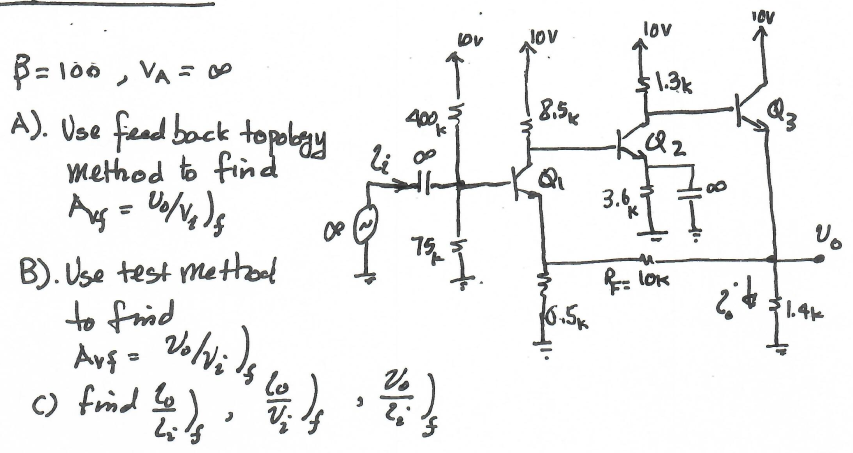 β = 100 , VA = ∞
A). Use feedback topology
method to find
Avf = vo/vi)f
B). Use test method
to find
Avf = vo/vi)f
c) find io/ii)f , io/vi)f , vo/ii)f
10V
10V
10V
10V
400k
8.5k
1.3k
Q1
Q2
Q3
ii
∞
75k
3.6k
∞
RF = 10K
vo
0.5k
io
1.4k